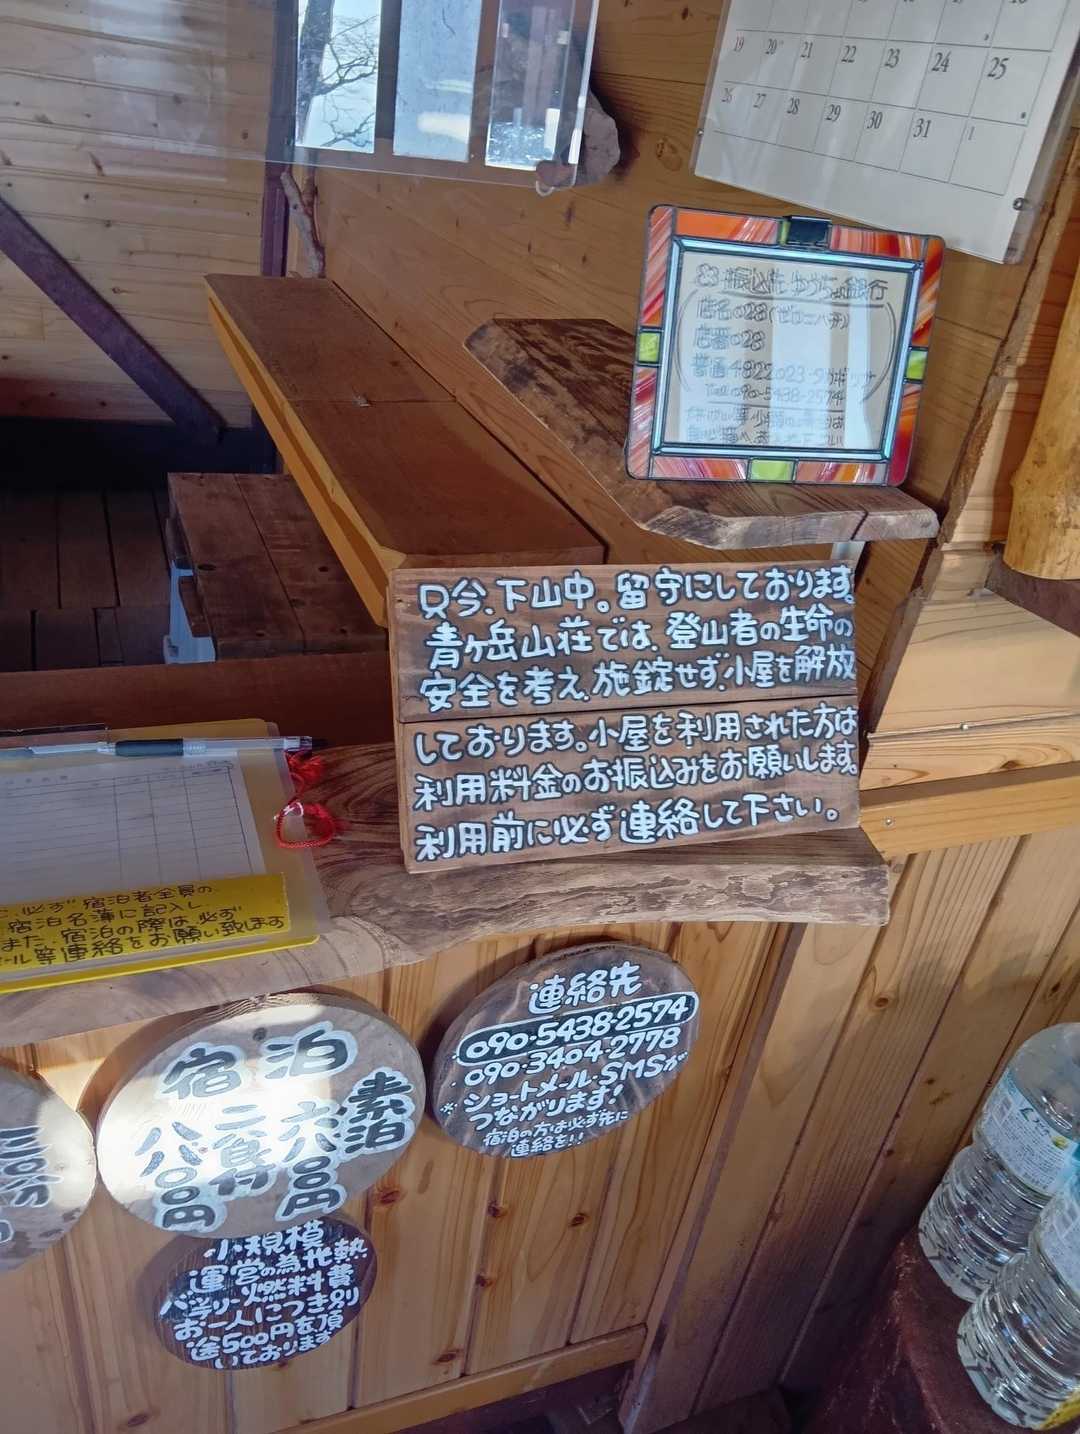 19 20 21 22 23 24 25
26 27 28 29 30 31 1
振込先 ゆうちょ銀行
店名 028 (ゼロニハチ)
店番 028
普通 4822023
Tel 090-5438-2574
只今、下山中。留守にしております。
青ヶ岳山荘では、登山者の生命の
安全を考え、施錠せず、小屋を解放
しております。小屋を利用された方は
利用料金のお振込みをお願いします。
利用前に必ず連絡して下さい。
必ず宿泊者全員の、
宿泊名簿に記入し
また、宿泊の際は必ず
メール等連絡をお願い致します
連絡先
090-5438-2574
090-3404-2778
※ショートメール・SMSが
つながります!
宿泊の方は必ず先に
連絡を!!
宿泊
素泊
六八〇〇円
二食付
八八〇〇円
小規模
運営の為光熱
バッテリー燃料費
お一人につき別
途500円を頂
いております